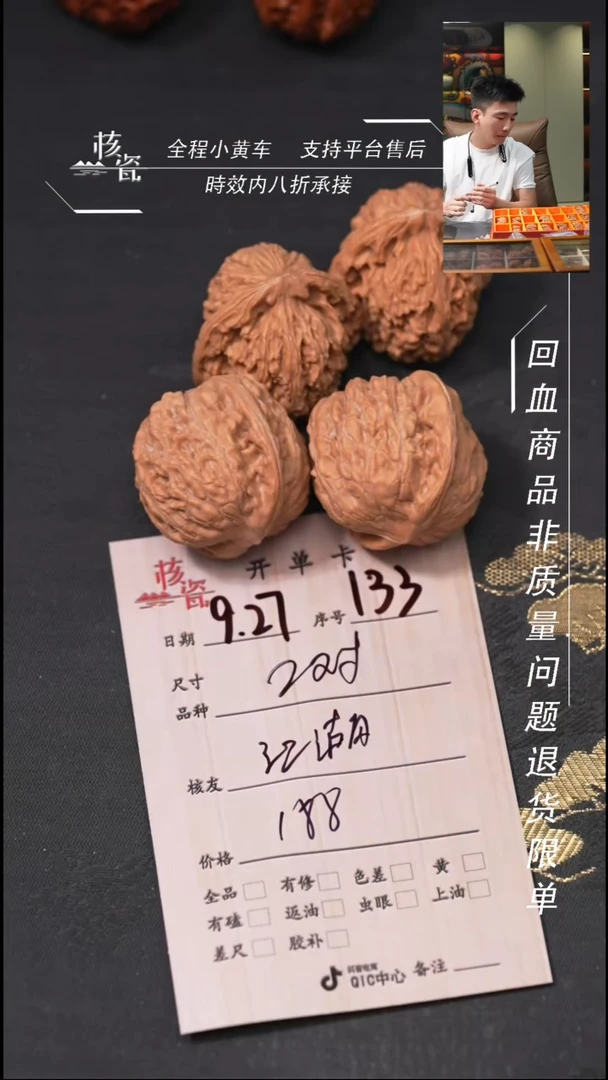 核瓷
全程小黄车 支持平台售后
時效内八折承接
回血商品非质量问题退货限单
核瓷
开单卡
日期 9.27 序号 133
尺寸 2对
品种
核友 江湖
价格 188
全品 有修 色差 黄
有磕 返油 虫眼 上油
差尺 胶补
抖音电商
QIC中心 备注